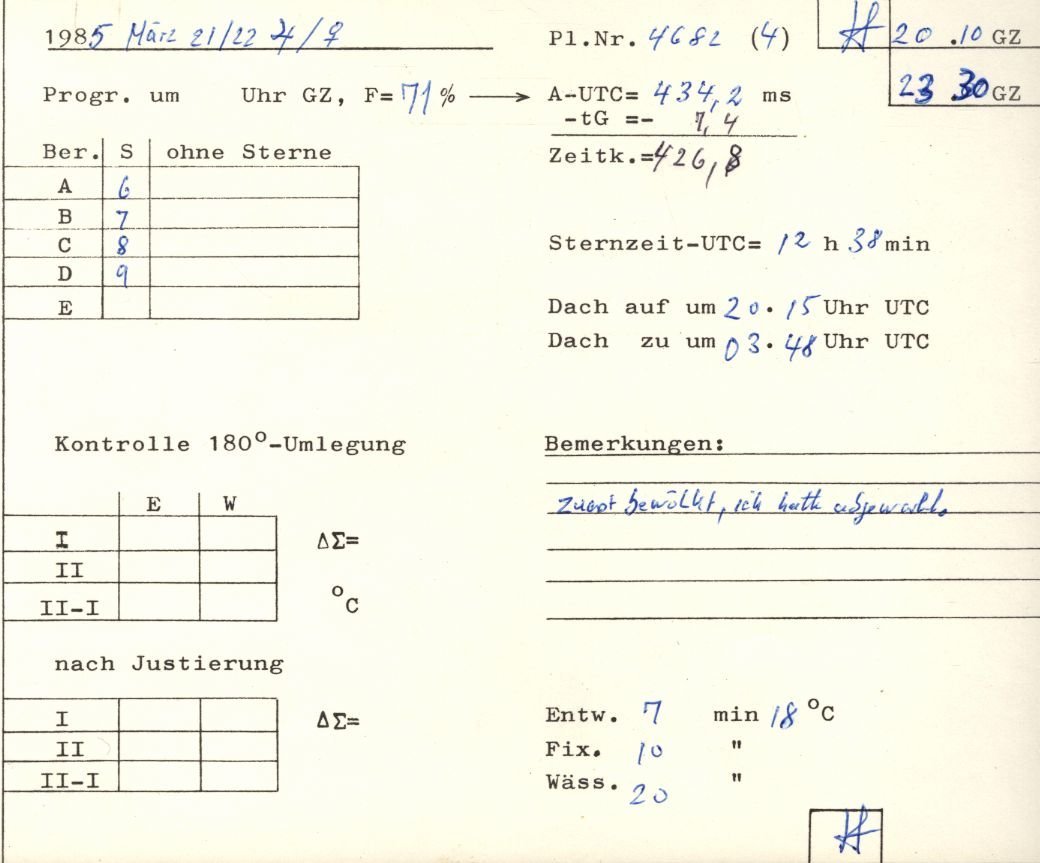 1985 März 21/22 ♃/♀ Pl.Nr. 4682 (4) 20.10 GZ
23 30 GZ
Progr. um Uhr GZ, F= 71% ⟶ A-UTC= 434,2 ms
-tG =- 7,4
Zeitk.=426,8
Ber. S ohne Sterne
A 6
B 7
C 8
D 9
E
Sternzeit-UTC= 12 h 38 min
Dach auf um 20.15 Uhr UTC
Dach zu um 03.48 Uhr UTC
Kontrolle 180°-Umlegung
E W
I ΔΣ=
II
II-I °C
nach Justierung
I ΔΣ=
II
II-I
Bemerkungen:
Zuerst bewölkt, ich hatte
Entw. 7 min 18 °C
Fix. 10 "
Wäss. 20 "